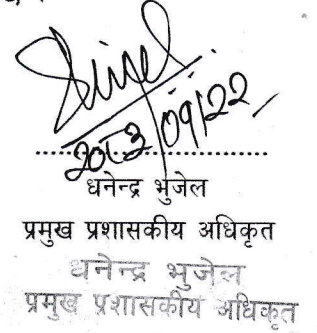 2013/09/22
धनेन्द्र भुजेल
प्रमुख प्रशासकीय अधिकृत
धनेन्द्र भुजेल
प्रमुख प्रशासकीय अधिकृत